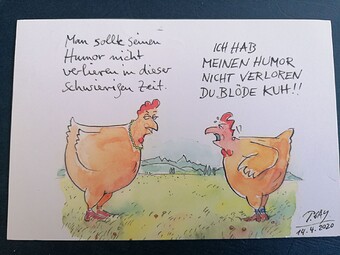 Man sollte seinen
Humor nicht
verlieren in dieser
schwierigen Zeit.
ICH HAB
MEINEN HUMOR
NICHT VERLOREN
DU BLÖDE KUH!!
14.4.2020